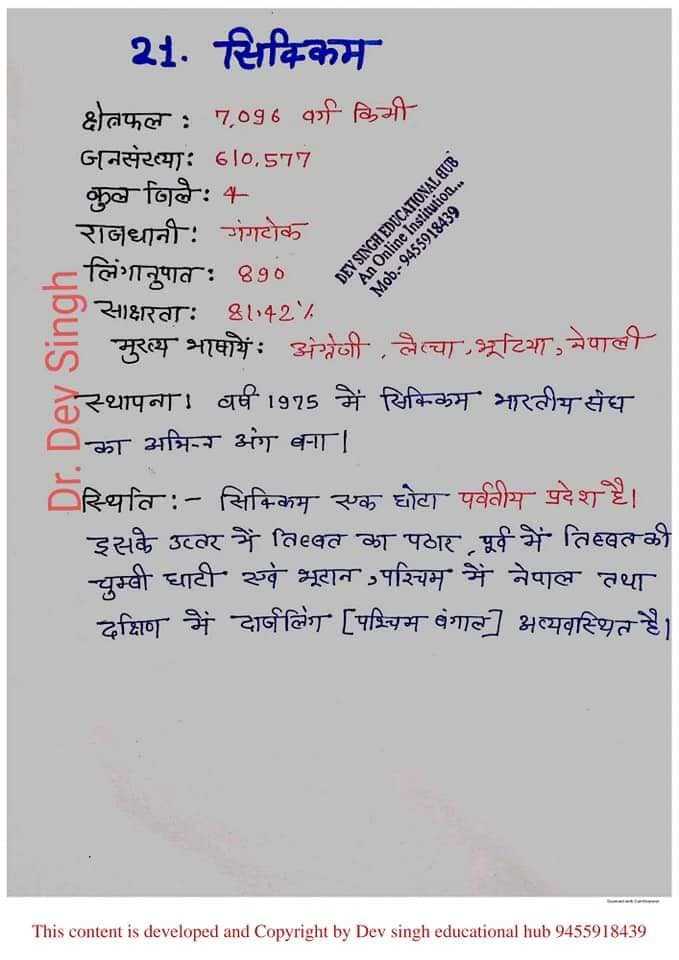 21. सिक्किम
क्षेत्रफल : 7,096 वर्ग किमी
जनसंख्या: 610,577
कुल जिले: 4
राजधानी: गंगटोक
लिंगानुपात : 890
साक्षरता: 81.42%
मुख्य भाषायें: अंग्रेजी , लैप्चा , भूटिया , नेपाली
स्थापना। वर्ष 1975 में सिक्किम भारतीय संघ
का अभिन्न अंग बना |
स्थिति :- सिक्किम एक छोटा पर्वतीय प्रदेश है।
इसके उत्तर में तिब्बत का पठार , पूर्व में तिब्बत की
चुम्बी घाटी एवं भूटान , पश्चिम में नेपाल तथा
दक्षिण में दार्जलिंग [पश्चिम बंगाल] अव्यवस्थित है।
DEV SINGH EDUCATIONAL HUB
An Online Institution...
Mob.- 9455918439
Dr. Dev Singh
Scanned with CamScanner
This content is developed and Copyright by Dev singh educational hub 9455918439